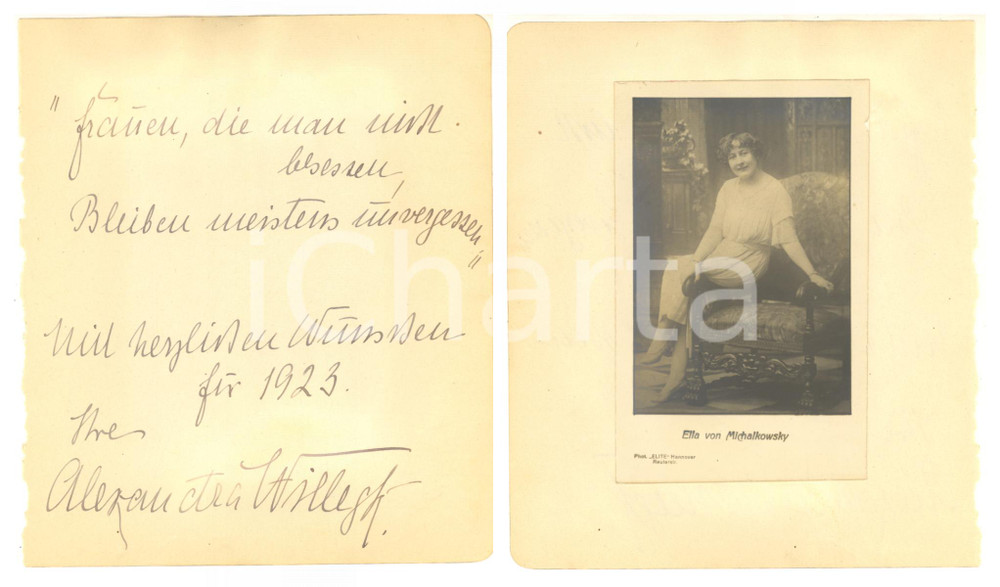 "Frauen, die man nicht
besessen,
Bleiben meistens unvergessen"
Mit herzlichen Wünschen
für 1923.
Ihre
Alexandra
iCharta
Ella von Michalkowsky
Phot. „ELITE" Hannover